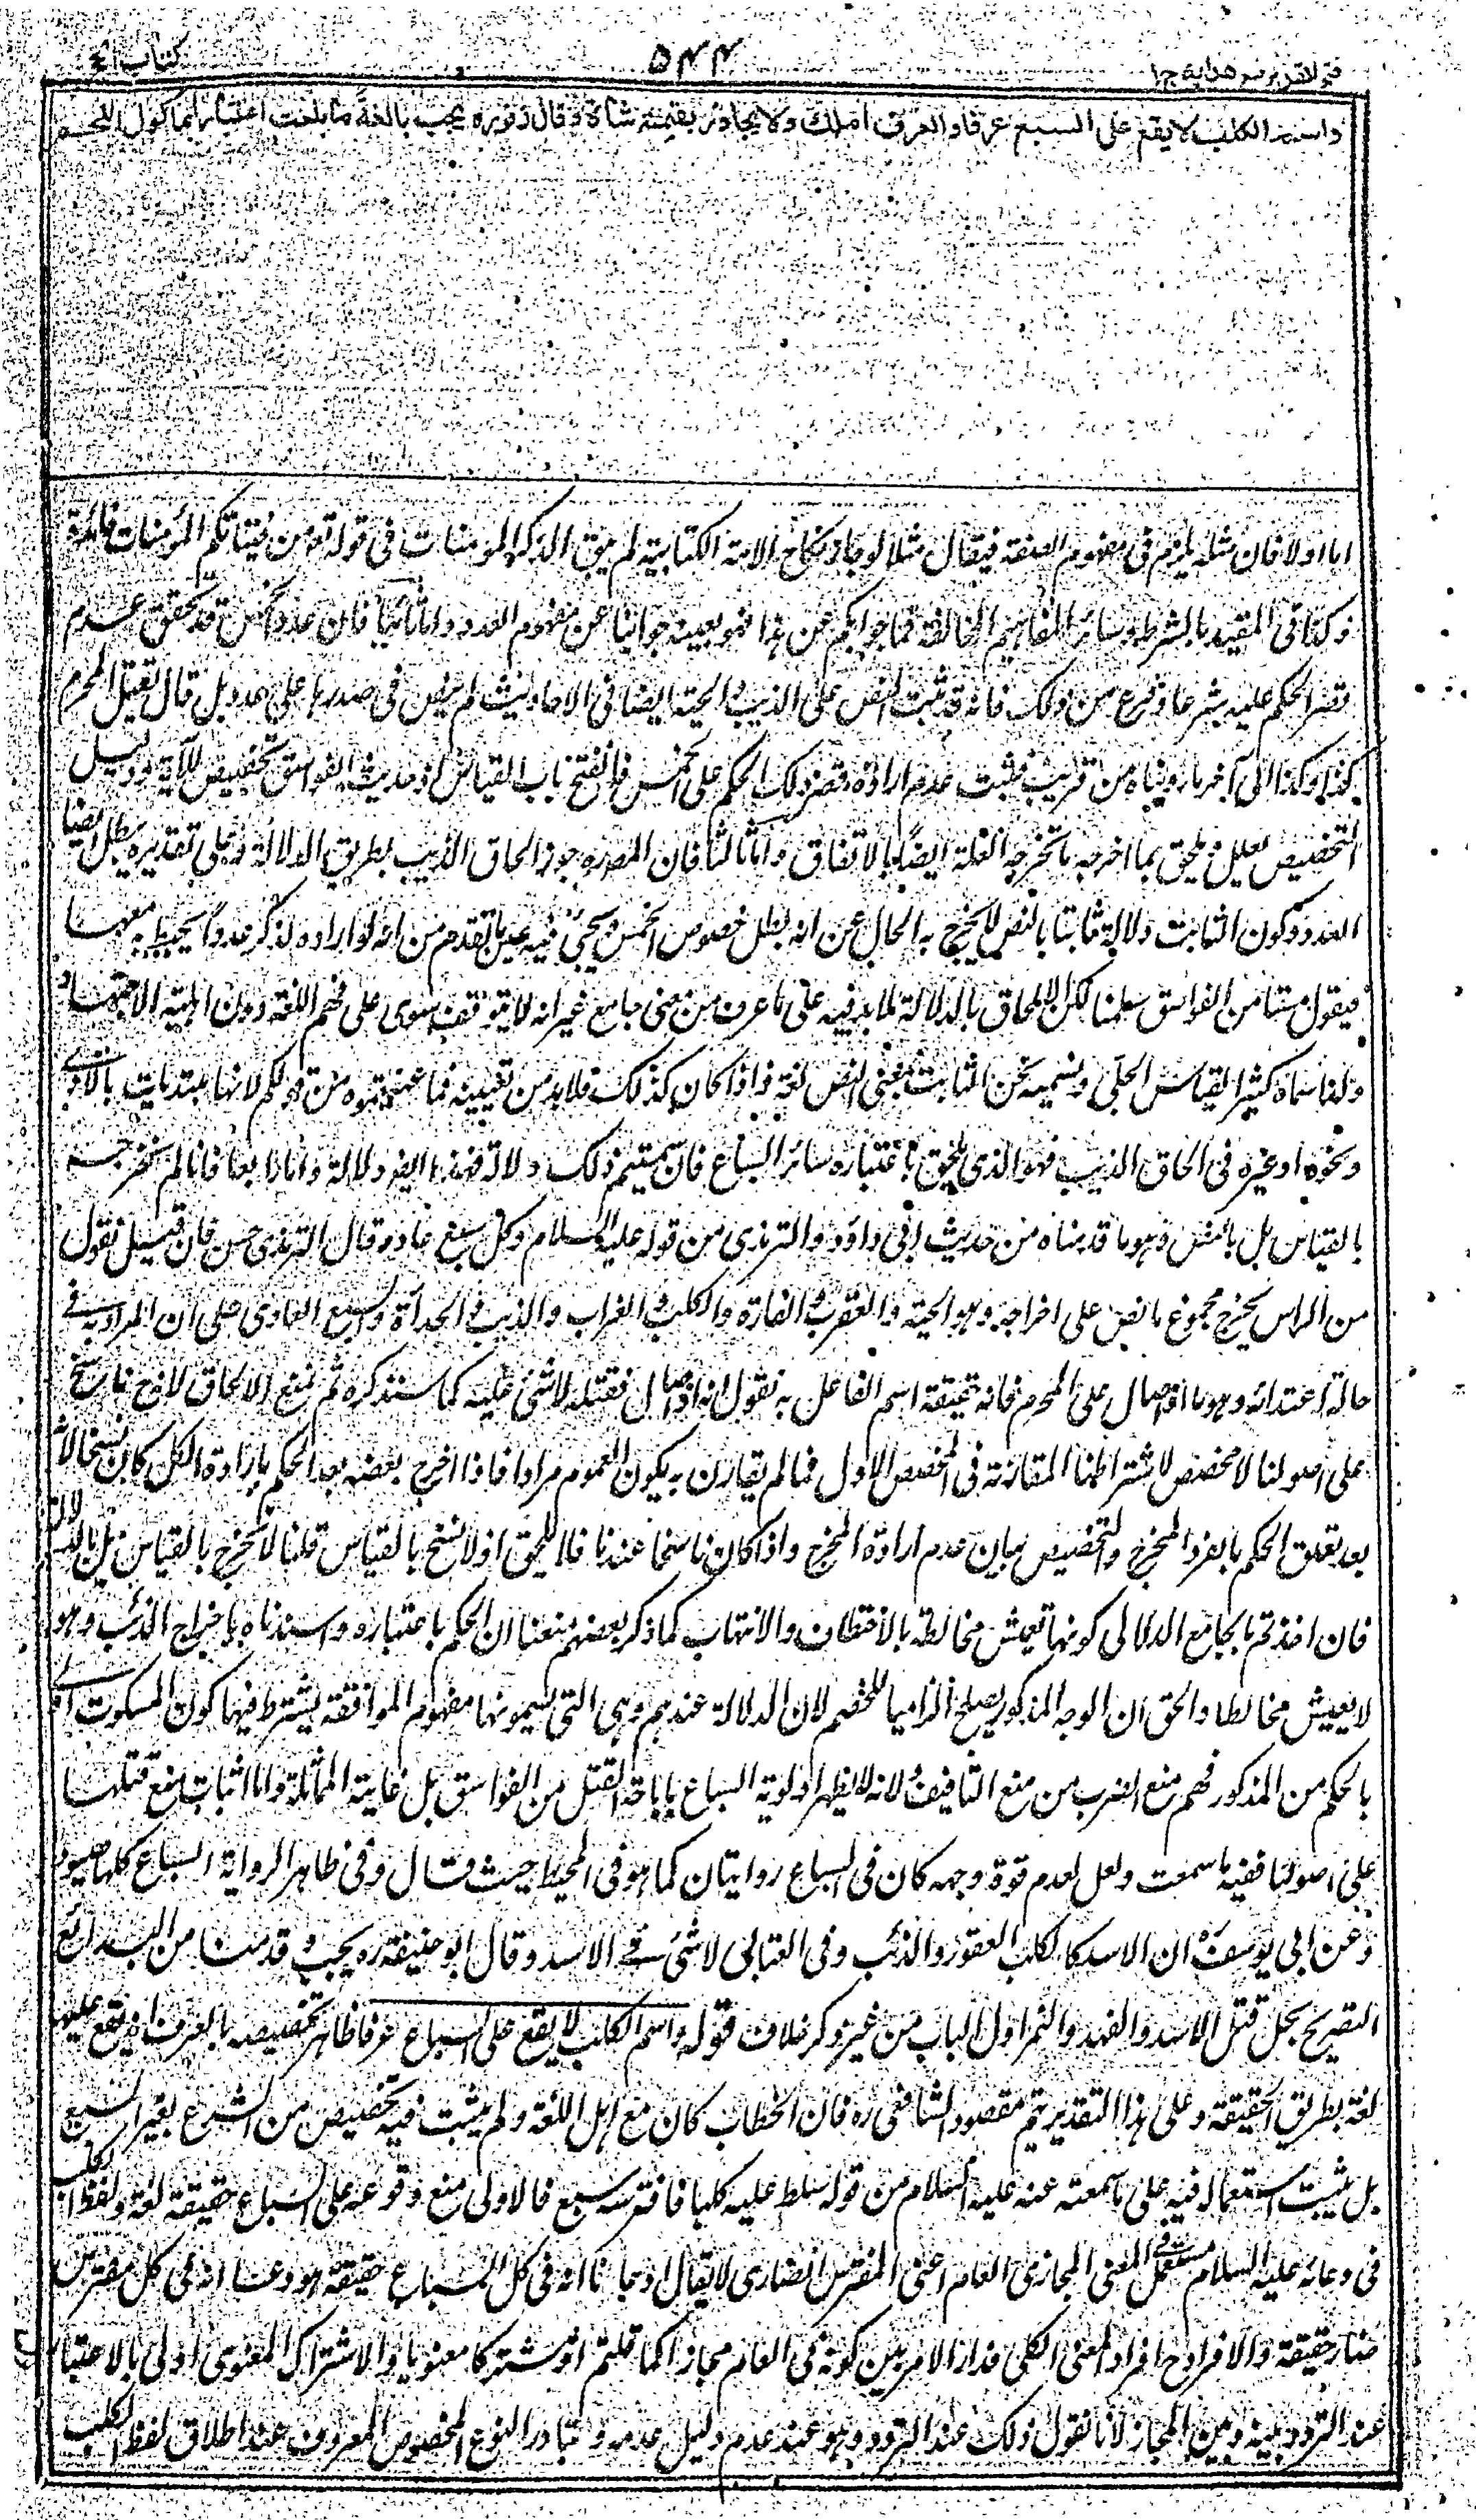 فتح القدير مع هدايه ج ١
٥٤٤
كتاب الحج
واسم الكلب لا يقع على السبع عرفا والعرف املك ولا يجاوز بقيمته شاة وقال زفر ره يجب بالغة ما بلغت اعتبارا بماكول اللحم
اما اولا فان مثله يلزم فى مفهوم الصفة فيقال مثلا لو جاز نكاح الامة الكتابية لم يبق لذكر المومنات فى قوله تع من فتياتكم المؤمنات فائدة
وكذا فى المقيد بالشرط وسائر المفاهيم المخالفة فما جوابكم عن هذا فهو بعينه جوابنا عن مفهوم العدد واما ثانيا فان عدد الخمس قد تحقق عدم
قصر الحكم عليه شرعا وفرع من ذلك فانه قد ثبت النص على الذيب والحية ايضا فى الاحاديث لم ينص فى صدرها على عدد بل قال يقتل المحرم
كذا وكذا الى آخر ما رويناه من قريب فثبت عدم ارادة قصر ذلك الحكم على الخمس فانفتح باب القياس اذ حديث الفواسق تخصيص للآية ودليل
التخصيص يعلل ويلحق بما اخرجه ما تخرجه العلة ايضا بالاتفاق واما ثالثا فان المصره جوز الحاق الذيب بطريق الدلالة وعلى تقديره يبطل ايضا
العدد وكون الثابت دلالة ثابتا بالنص لا يخرج به الحال عن انه بطل خصوص الخمس ويجئ فيه عين ما تقدم من انه لو اراده لذكر عددا يحيط به معها
فيقول ستا من الفواسق سلمنا لكن الالحاق بالدلالة لا بد فيه على ما عرف من معنى جامع غير انه لا يتوقف سوى على فهم اللغة دون اهلية الاجتهاد
ولذا سماه كثير القياس الجلى ونسميه نحن الثابت بمعنى النص لغة واذا كان كذلك فلا بد من تعيينه فما عينتموه من قولكم لانها مبتديات بالاذى
ونحوه او غيره فى الحاق الذيب فهو الذى يلحق باعتباره سائر السباع فان سميتم ذلك دلالة فهذا ايضا دلالة واما رابعا فانا لم نخرجه
بالقياس بل بالنص وهو ما قدمناه من حديث ابى داود والترمذى من قوله عليه السلام وكل سبع عاد وقال الترمذى حسن فان قيل نقول
من الراس يخرج مجموع ما نص على اخراجه وهو الحية والعقرب والفارة والكلب والغراب والذيب والحداة والسبع العادى على ان المراد به فى
حالة اعتدائه وهو ما اذا صال على المحرم فانه حقيقة اسم الفاعل به نقول انه اذا صال فقتله لا شئ عليه كما سنذكره ثم نمنع الالحاق لانه ح ناسخ
على اصولنا لا مخصص لاشتراطنا المقارنة فى المخصص الاول فما لم يقارن به يكون العموم مرادا فاذا اخرج بعضه بعد الحكم بارادة الكل كان نسخا لانه
بعد تعلق الحكم بالفرد المخرج والتخصيص بيان عدم ارادة المخرج واذا كان ناسخا عندنا فلا يلحق اذ لا نسخ بالقياس قلنا لا نخرج بالقياس بل بالدلالة
فان اخذتم بالجامع الدلالى كونها تعيش مخالطة بالاختطاف والانتهاب كما ذكر بعضهم منعنا ان الحكم باعتباره واسندناه باخراج الذئب وهو
لا يعيش مخالطا والحق ان الوجه المذكور يصلح الزاميا للخصم لان الدلالة عندهم وهى التى يسمونها مفهوم الموافقة يشترط فيها كون المسكوت اولى
بالحكم من المذكور فهم منع الضرب من منع التافيف ولانه لا يظهر اولوية السباع باباحة القتل من الفواسق بل غاية المماثلة واما اثبات منع قتلها
على اصولنا ففيه ما سمعت ولعل لعدم قوة وجهه كان فى السباع روايتان كما هو فى المحيط حيث قال وفى ظاهر الرواية السباع كلها صيود
وعن ابى يوسف ره ان الاسد كالكلب العقور والذئب وفى العتابى لا شئ فى الاسد وقال ابو حنيفة ره يجب وقدمنا من البدائع
التصريح بحل قتل الاسد والفهد والنمر اول الباب من غير ذكر خلاف قوله واسم الكلب لا يقع على السباع عرفا ظاهر تخصيصه بالعرف انه يقع عليه
لغة بطريق الحقيقة وعلى هذا التقدير يتم مقصود الشافعى ره فان الخطاب كان مع اهل اللغة ولم يثبت فيه تخصيص من الشرع بغير السبع
بل يثبت استعماله فيه على ما سمعته عنه عليه السلام من قوله سلط عليه كلبا فافترسه سبع فالاولى منع وقوعه على السباع حقيقة لغة ولفظ الكلب
فى دعائه عليه السلام مستعمل فى المعنى المجازى العام اعنى المفترس الضارى لا يقال ادعاؤنا انه فى كل السباع حقيقة هو دعا انه فى كل مفترس
ضار حقيقة والافراد ح افراد المعنى الكلى فدار الامر بين كونه فى العام مجازا كما قلتم او مشتركا معنويا والاشتراك المعنوى اولى بالاعتبار
عند التردد بينه وبين المجاز لانا نقول ذلك عند التردد وهو عند عدم دليل عدمه وتبادر النوع المخصوص المعروف عند اطلاق لفظ الكلب